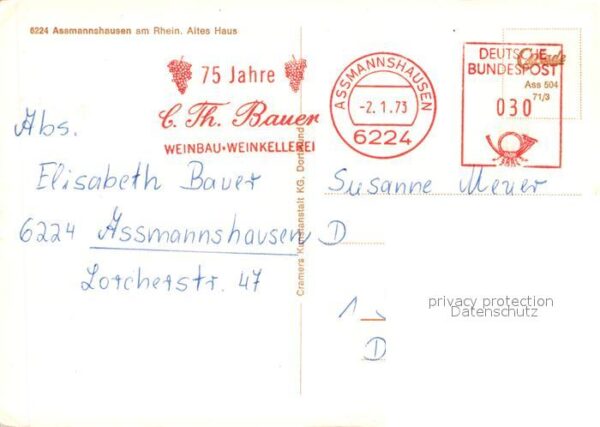 6224 Assmannshausen am Rhein. Altes Haus
75 Jahre
C. Th. Bauer
WEINBAU·WEINKELLEREI
ASSMANNSHAUSEN
-2.1.73
6224
DEUTSCHE
BUNDESPOST
030
Ass 504
71/3
Abs.
Elisabeth Bauer
6224 Assmannshausen
Lorcherstr. 47
Cramers Kunstanstalt KG, Dortmund
Susanne Meuer
D
1
D
privacy protection
Datenschutz